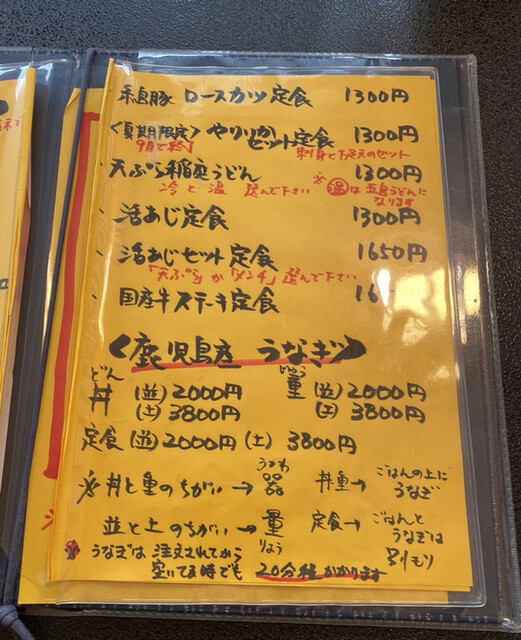 豚 ロースカツ定食 1300円
〈夏期限定〉 やりいか セット定食 1300円
9月で終了 刺身と下足天のセット
・天ぷら稲庭うどん 1300円
冷と温 選んで下さい ※温は五島うどんになります
・活あじ定食 1300円
・活あじセット定食 1650円
「天ぷら」か「メンチ」選んで下さい
・国産牛ステーキ定食 16
〈鹿児島産 うなぎ〉
どん じゅう
丼 (並) 2000円 重 (並) 2000円
(上) 3800円 (上) 3800円
定食 (並) 2000円 (上) 3800円
うつわ
※丼と重のちがい→器 丼重→ごはんの上にうなぎ
並と上のちがい→量 定食→ごはんとうなぎは別もり
りょう
※うなぎは注文されてから
空いてる時でも 20分程かかります